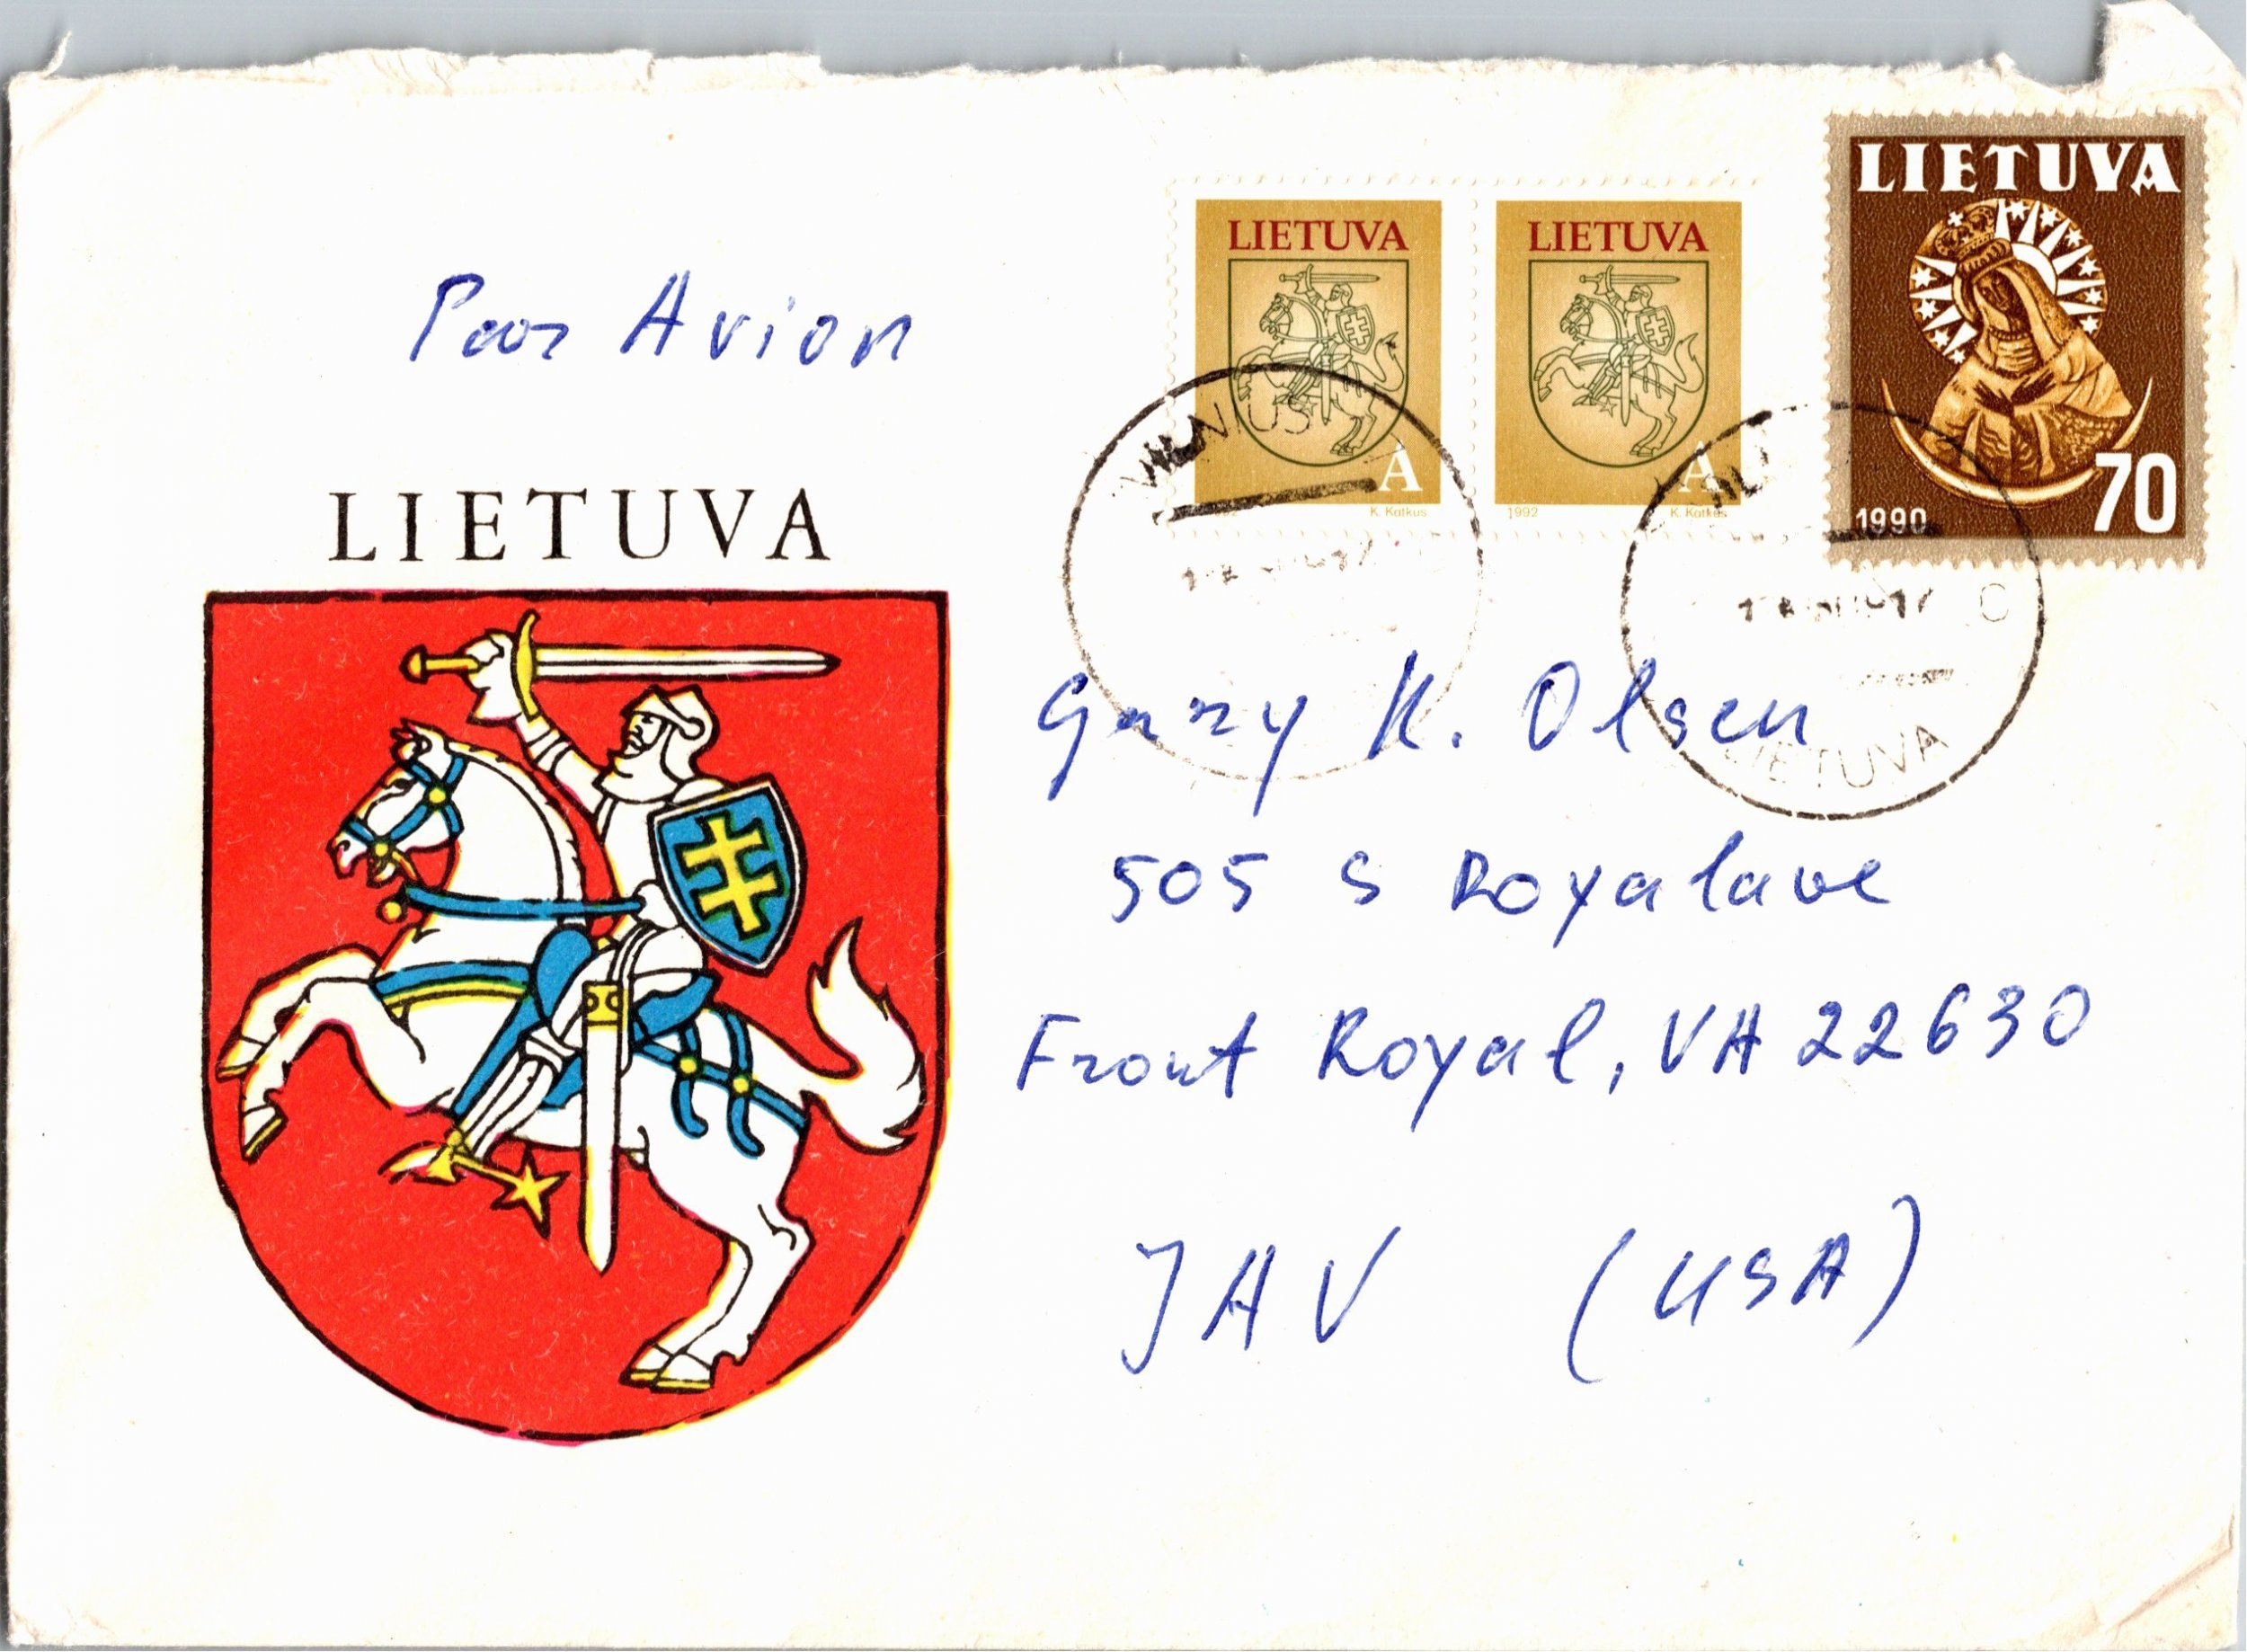 Par Avion
LIETUVA
LIETUVA
A
K. Katkus
LIETUVA
A
1992
K. Katkus
LIETUVA
1990
70
VILNIUS
LIETUVA
Gary K. Olsen
505 S Royalave
Front Royal, VA 22630
JAV (USA)